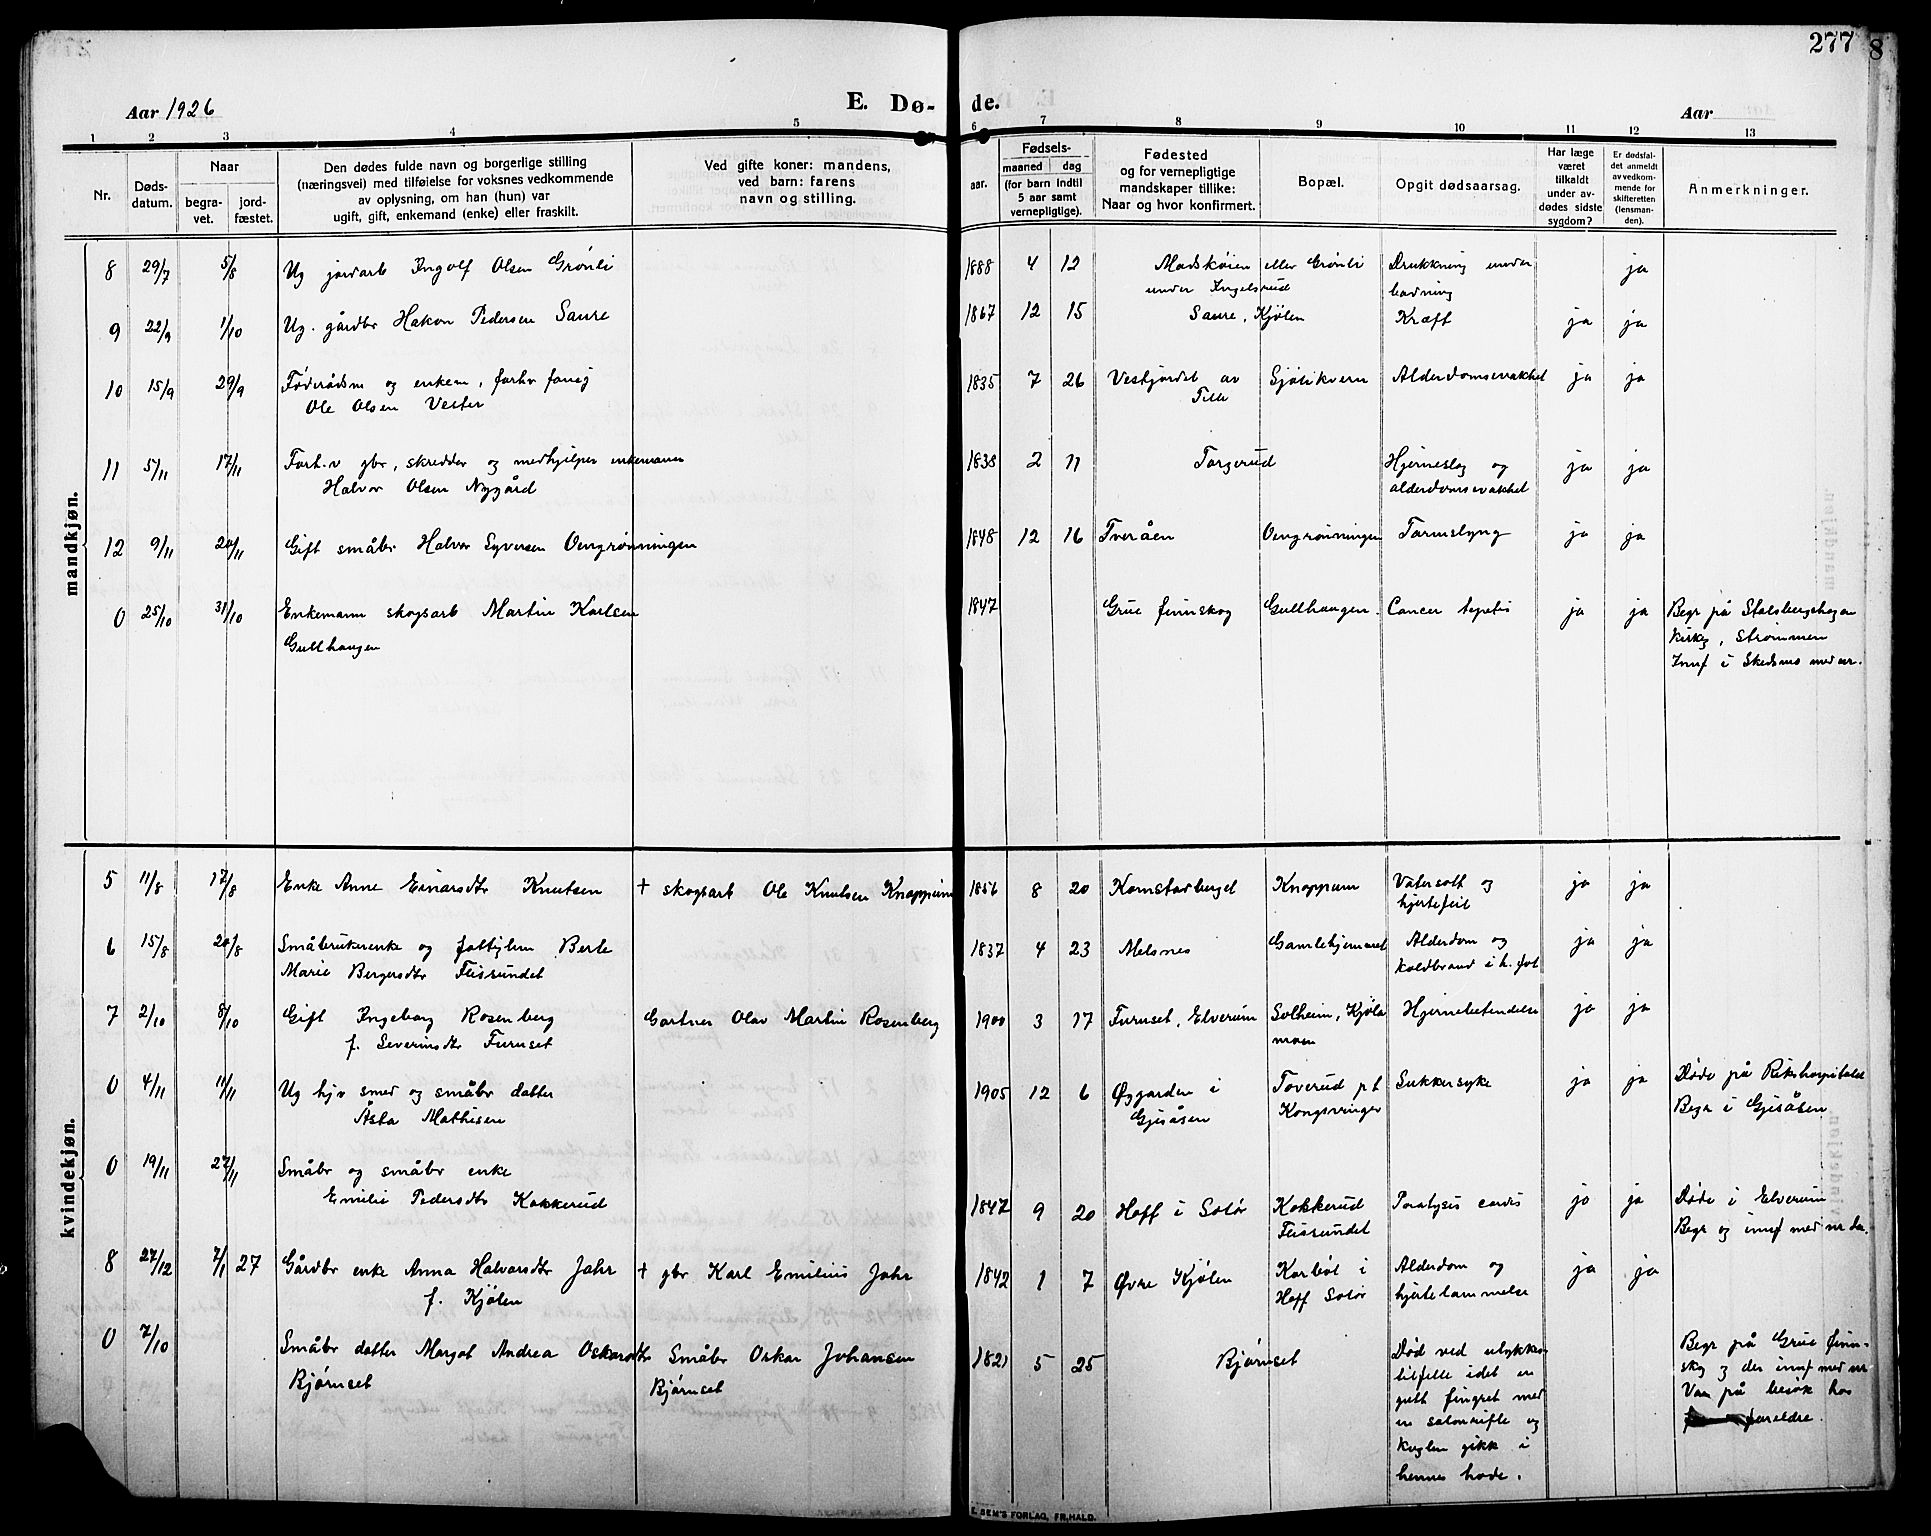 277 8
Aar 1926
E. Dø- de.
Aar
1 2 3 4 5 6 7 8 9 10 11 12 13
Nr.
Døds-
datum.
Naar
begra-
vet.
jord-
fæstet.
Den dødes fulde navn og borgerlige stilling
(næringsvei) med tilføielse for voksnes vedkommende
av oplysning, om han (hun) var
ugift, gift, enkemand (enke) eller fraskilt.
Ved gifte koner: mandens,
ved barn: farens
navn og stilling.
Fødsels-
aar. maaned dag
(for barn indtil
5 aar samt
vernepligtige).
Fødested
og for vernepligtige
mandskaper tillike:
Naar og hvor konfirmert.
Bopæl.
Opgit dødsaarsag.
Har læge
været
tilkaldt
under av-
dødes sidste
sygdom?
Er dødsfal-
det anmeldt
av vedkom-
mende for
skifteretten
(lensman-
den).
Anmerkninger.
mandkjøn.
8 29/7 5/8 Ug jordarb Ingolf Olsen Grønli 1888 4 12 Madskøien eller Grønli Drukkning under ja
under Ingelsrud badning
9 22/9 1/10 Ug. gårdbr Hakon Pedersen Saure 1867 12 15 Saure, Kjølen Kræft ja ja
10 15/9 29/9 Føderådsm og enkem, forhv 1835 7 26 Vestjordet av Sjølikvern Alderdomssvakhet ja ja
Ole Olsen Vester Tille
11 5/11 17/11 Forh.v gbr, skredder og medhjelper enkemann 1838 2 11 Torgerud Hjerneslag og ja ja
Halvor Olsen Nygård alderdomssvakhet
12 9/11 20/11 Gift småbr Halvor Syversen Oengrønningen 1848 12 16 Tveråen Oengrønningen Tarmslyng ja ja
0 25/10 31/10 Enkemann skogsarb Martin Karlsen 1847 Grue finnskog Gullhaugen. Cancer ja ja Begr på Stalsberghagan
Gullhaugen kirkeg, Strømmen
Innf i Skedsmo med nr.
kvindekjøn.
5 11/8 17/8 Enke Anne Einarsdtr Knutsen + skogsarb Ole Knutsen Knappum 1856 8 20 Kornstadberget Knappum Vatersott og ja ja
hjertefeil
6 15/8 20/8 Småbrukerenke og fattiglem Berte 1837 4 23 Melsnes Gamlehjemmet Alderdom og ja ja
Marie Bergersdtr Feissundet koldbrand i h. fot
7 2/10 8/10 Gift Ingeborg Rosenberg Gartner Olav Martin Rosenberg 1900 3 17 Furuset, Elverum Solheim, Kjøla Hjernebetendelse ja ja
f. Severinsdtr Furuset moen
0 4/11 11/11 Ug hjv smed og småbr datter 1905 12 6 Øygarden i Toverud p t Sukkersyke ja ja Døde på Rikshospitalet
Åsta Mathisen Gjesåsen Kongsvinger Begr i Gjesåsen
0 19/11 27/11 Småbr og småbr enke
Emilie Pedersdtr Kokkerud 1847 9 20 Hoff i Solør Kokkerud Paralysis cordis ja ja Døde i Elverum
Feissundet Begr og innf med nr der.
8 27/12 7/1 27 Gårdbr enke Anna Halvorsdtr Jahr + gbr Karl Emilius Jahr 1842 1 7 Øvre Kjølen Karbøl i Alderdom og ja ja
f. Kjølen Hoff Solør hjertelammelse
0 7/10 Småbr datter Margot Andrea Oskarsdtr Småbr Oskar Johansen 1821 5 25 Bjørnset Død ved ulykkes Begr på Grue finn-
Bjørnset Bjørnset tilfelle idet en skog og der innf med nr
gutt fingret med Var på besök hos
en salonrifle og foreldre.
kuglen gikk i
hennes hode.
E. SEM'S FORLAG, FR.HALD.